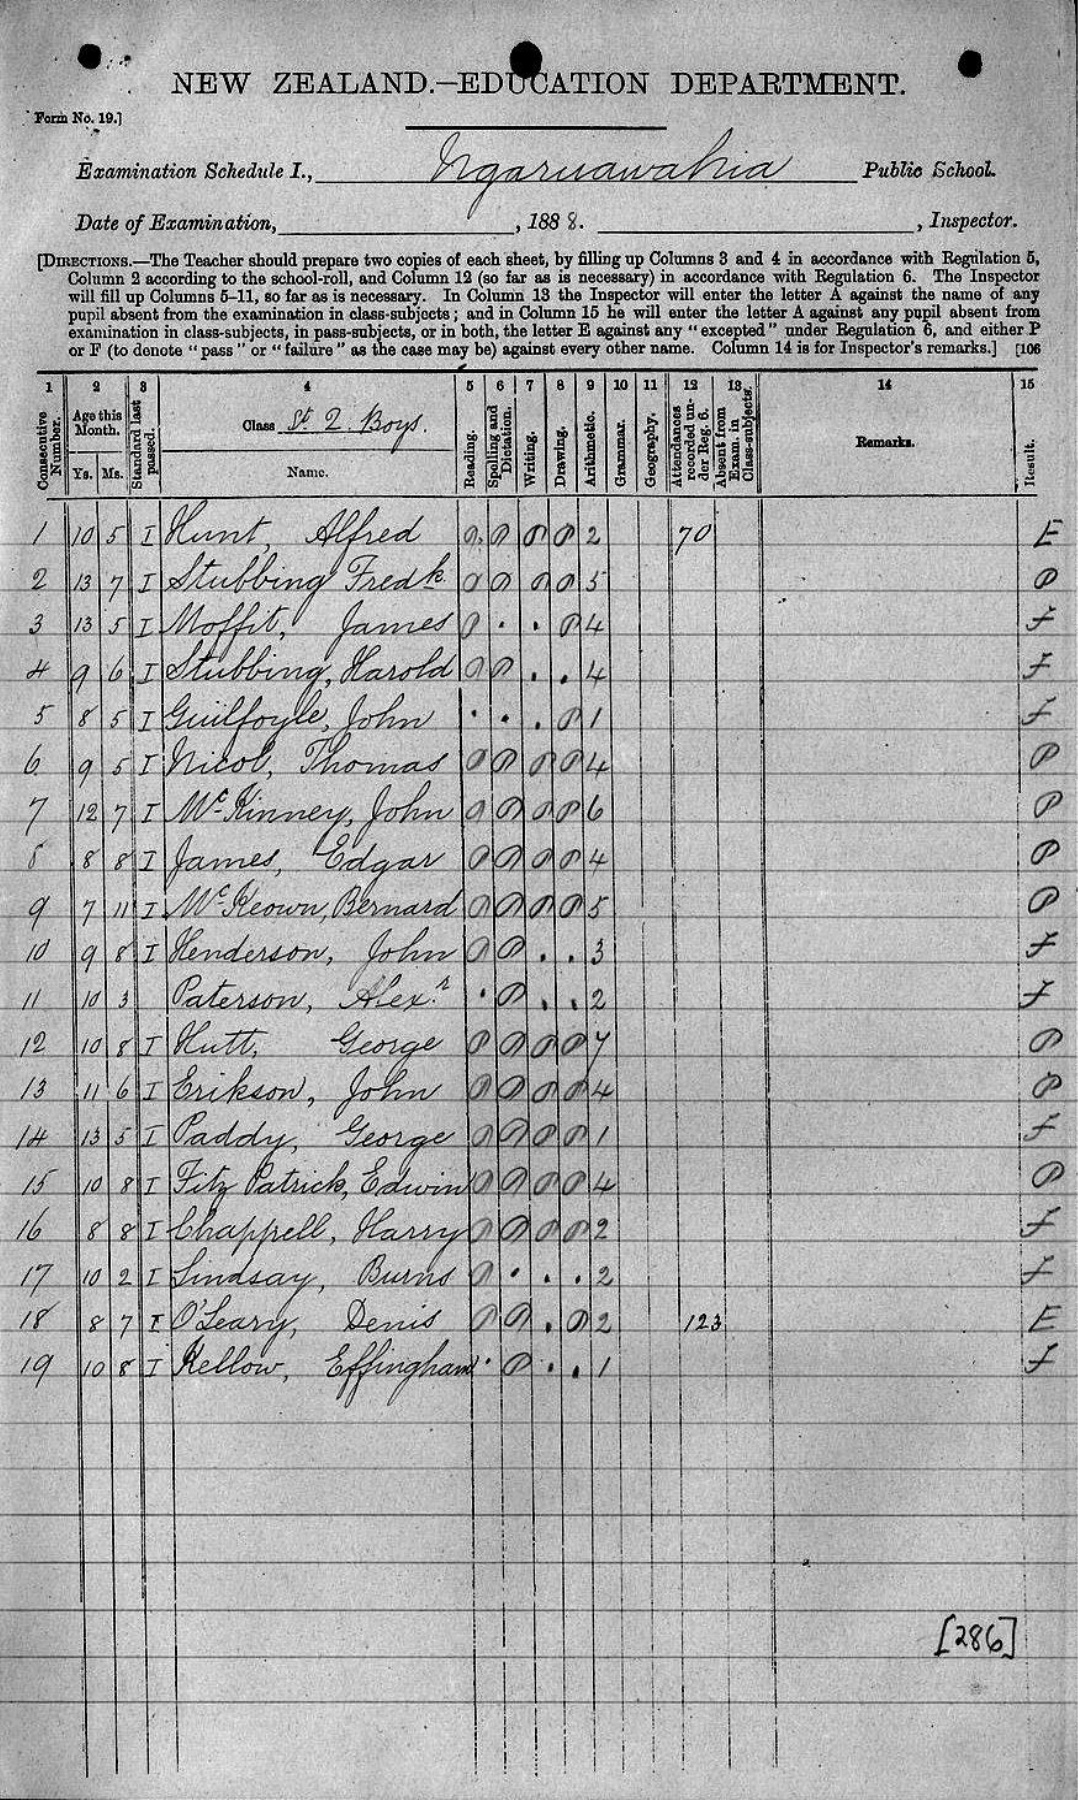 NEW ZEALAND.—EDUCATION DEPARTMENT.
Form No. 19.]
Examination Schedule I., Ngaruawahia Public School.
Date of Examination, , 1888. , Inspector.
[DIRECTIONS.—The Teacher should prepare two copies of each sheet, by filling up Columns 3 and 4 in accordance with Regulation 5,
Column 2 according to the school-roll, and Column 12 (so far as is necessary) in accordance with Regulation 6. The Inspector
will fill up Columns 5–11, so far as is necessary. In Column 13 the Inspector will enter the letter A against the name of any
pupil absent from the examination in class-subjects; and in Column 15 he will enter the letter A against any pupil absent from
examination in class-subjects, in pass-subjects, or in both, the letter E against any "excepted" under Regulation 6, and either P
or F (to denote "pass" or "failure" as the case may be) against every other name. Column 14 is for Inspector's remarks.] [106
1 2 3 4 5 6 7 8 9 10 11 12 13 14 15
Consecutive Number. Age this Month. Ys. Ms. Standard last passed. Class St. 2. Boys. Name. Reading. Spelling and Dictation. Writing. Drawing. Arithmetic. Grammar. Geography. Attendances recorded under Reg. 6. Absent from Exam. in Class-subjects. Remarks. Result.
1 10 5 I Hunt, Alfred P P P P 2 70 E
2 13 7 I Stubbing Fredk. P P P P 5 P
3 13 5 I Moffit, James P . . P 4 F
4 9 6 I Stubbing, Harold P P . . 4 F
5 8 5 I Guilfoyle, John . . . P 1 F
6 9 5 I Nicol, Thomas P P P P 4 P
7 12 7 I McKinney, John P P P P 6 P
8 8 8 I James, Edgar P P P P 4 P
9 7 11 I McKeown, Bernard P P P P 5 P
10 9 8 I Henderson, John P P . . 3 F
11 10 3 Paterson, Alexr . P . . 2 F
12 10 8 I Hutt, George P P P P 7 P
13 11 6 I Erikson, John P P P P 4 P
14 13 5 I Paddy, George P P P P 1 F
15 10 8 I Fitz Patrick, Edwin P P P P 4 P
16 8 8 I Chappell, Harry P P P P 2 F
17 10 2 I Lindsay, Burns P . . . 2 F
18 8 7 I O'Leary, Denis P P . P 2 123 E
19 10 8 I Kellow, Effingham . P . . 1 F
[286]